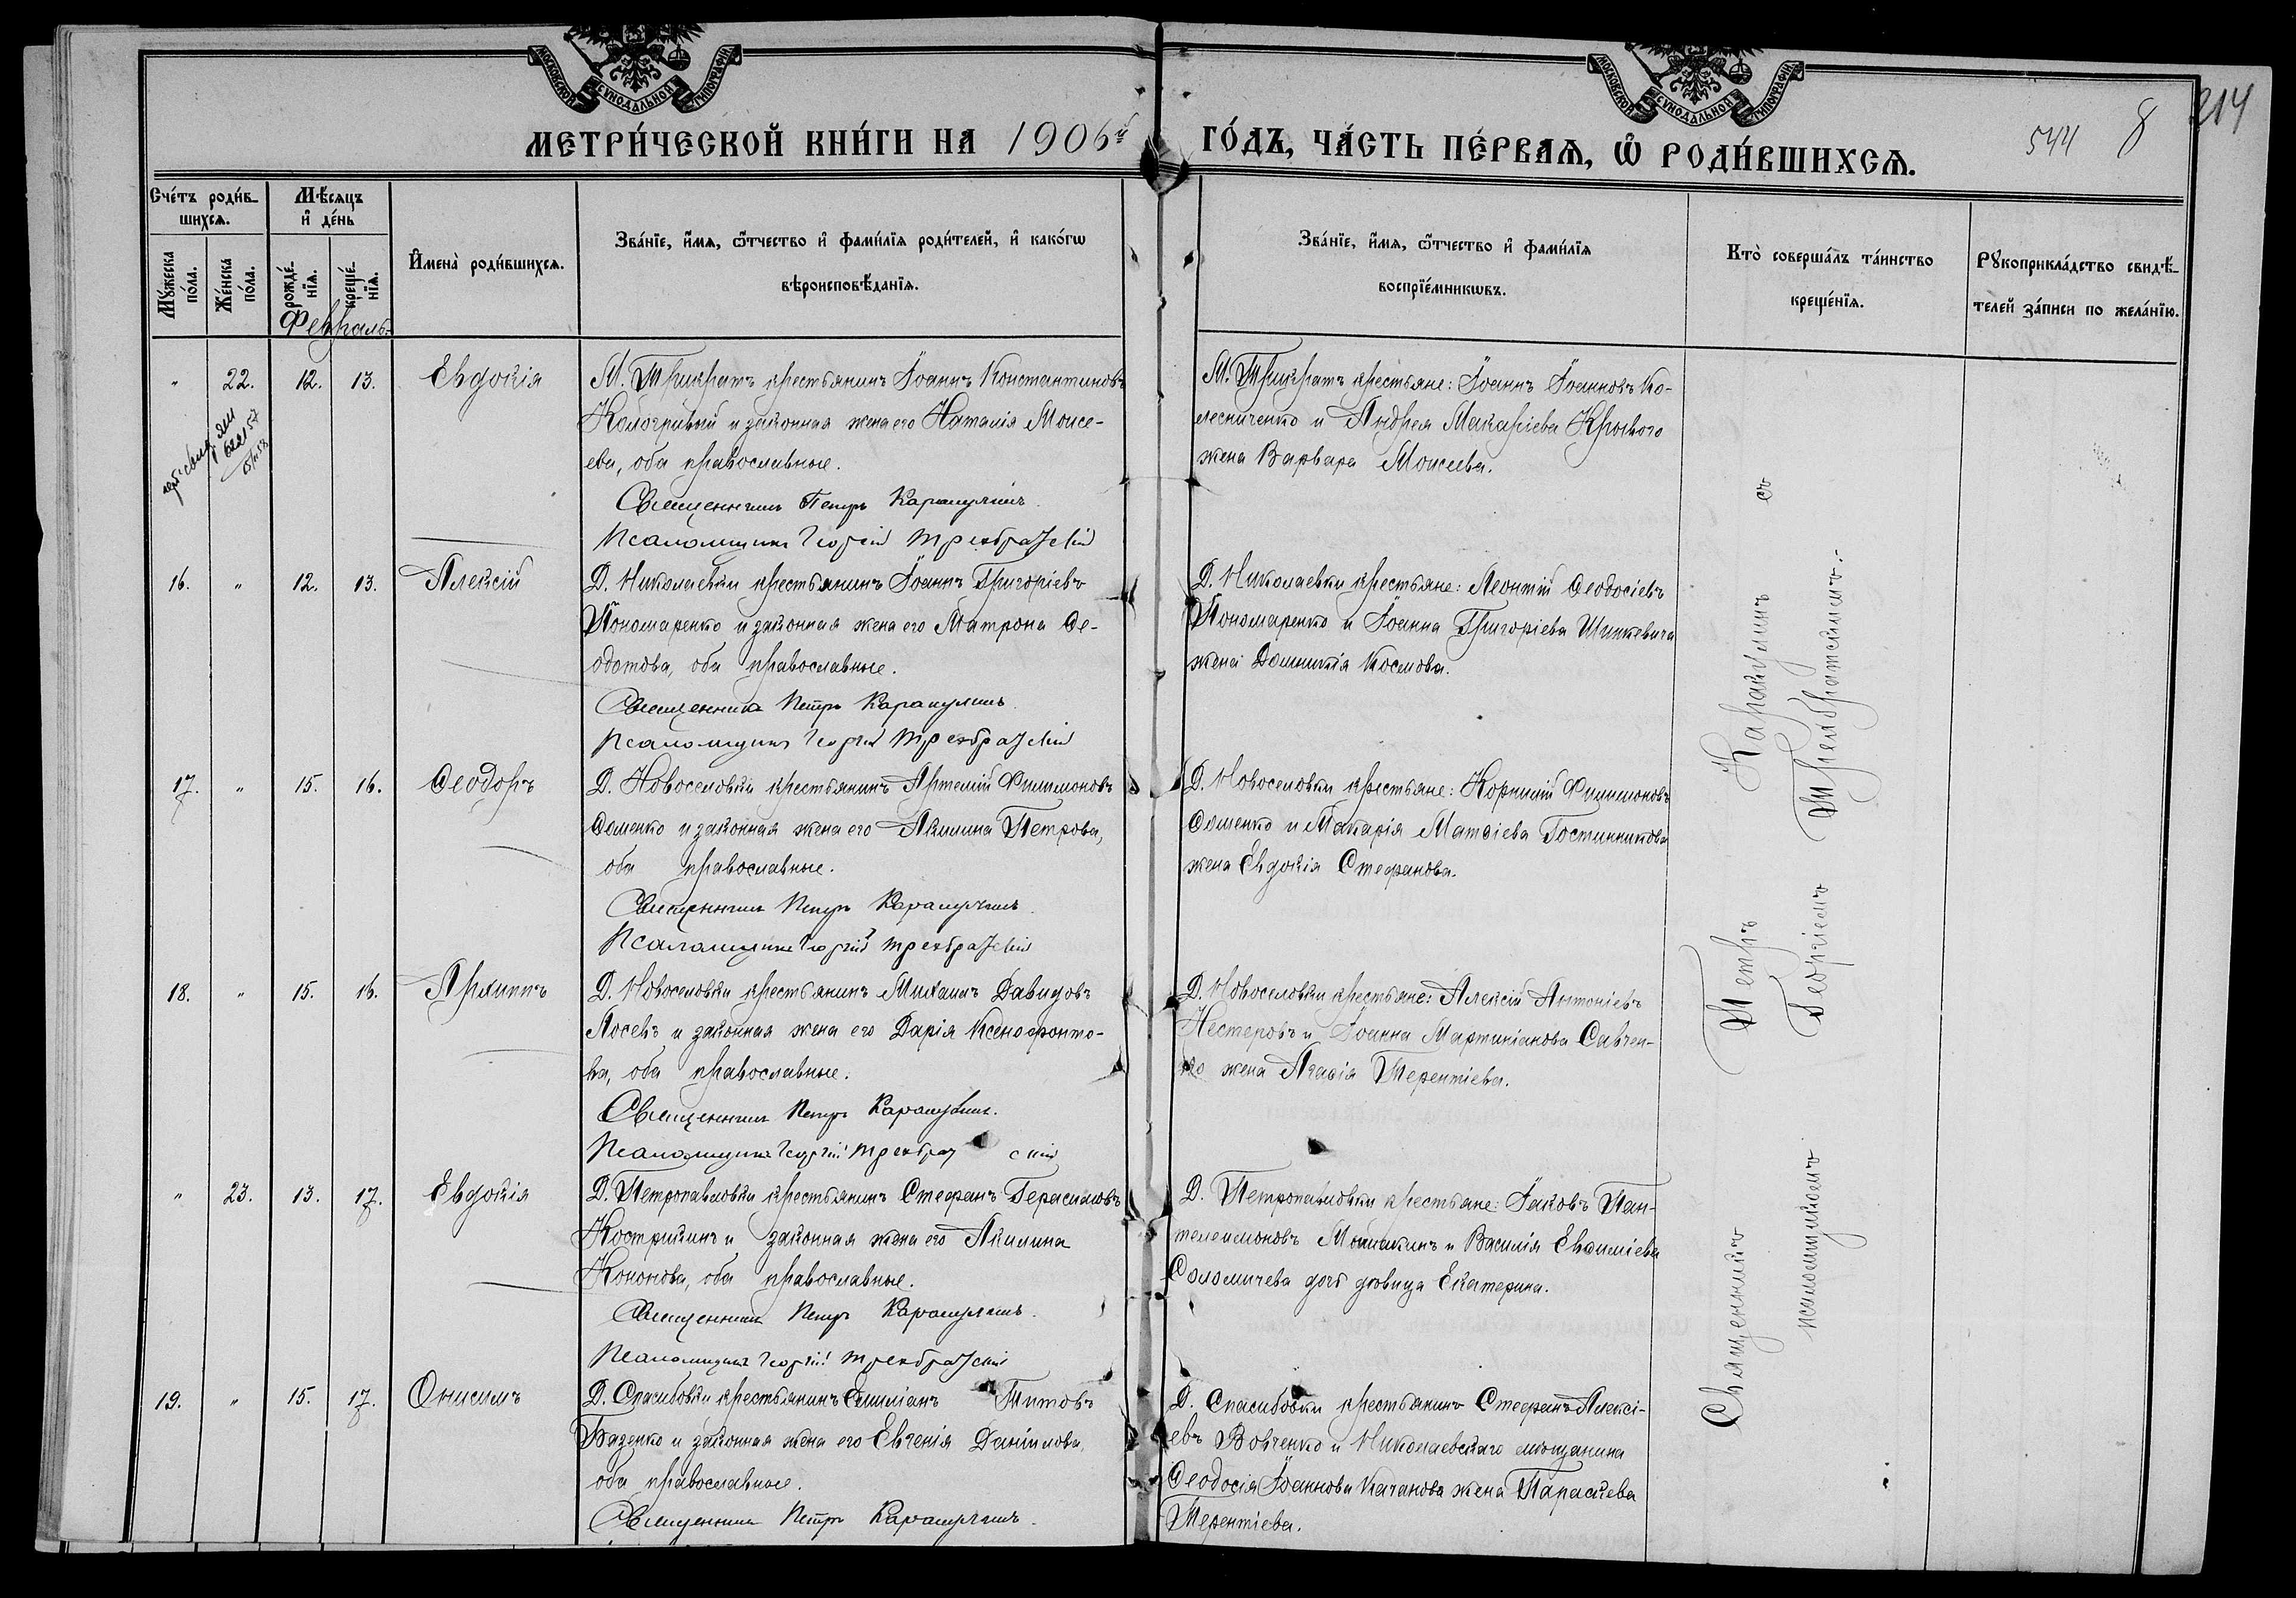 МОСКОВСКОЙ СѴНОДАЛЬНОЙ ТИПОГРАФІИ
МОСКОВСКОЙ СѴНОДАЛЬНОЙ ТИПОГРАФІИ
МЕТРИ́ЧЕСКОЙ КНИ́ГИ НА 1906й ГО́ДЪ, ЧА́СТЬ ПЕ́РВАЯ, Ѽ РОДИ́ВШИХСЯ.
544 8 214
Сче́тъ роди́в-
шихся.
Мѣ́сяцъ
и҆ де́нь
Му́жеска по́ла.
Же́нска по́ла.
рожде́-нїя.
креще́-нїя.
И҆мена̀ роди́вшихся.
Зва́нїе, и҆́мя, ѻ҆́тчество и҆ фами́лїя роди́телей, и҆ како́гѡ
вѣроисповѣ́данїя.
Зва́нїе, и҆́мя, ѻ҆́тчество и҆ фами́лїя
воспрїе́мникѡвъ.
Кто̀ соверша́лъ та́инство
креще́нїя.
Рꙋкоприкла́дство свидѣ́-
телей за́писи по жела́нїю.
Февраль
" 22. 12. 13. Евдокія
М. Трикратъ крестьянинъ Іоаннъ Константиновъ
Кологривый и законная жена его Наталія Моисе-
ева, оба православные.
Священникъ Петръ Карашулинъ
Псаломщикъ Георгій
М. Трикратъ крестьяне: Іоаннъ Іоанновъ Ко-
лесниченко и Андрея Макаріева Крывого
жена Варвара Моисеева.
16. " 12. 13. Алексій
Д. Николаевки крестьянинъ Іоаннъ Григоріевъ
Пономаренко и законная жена его Матрона Ѳе-
одотова, оба православные.
Священникъ Петръ Карашулинъ
Псаломщикъ Георгій
Д. Николаевки крестьяне: Леонтій Ѳеодосіевъ
Пономаренко и Іоанна Григоріева Шинкевича
жена Домникія Космова.
17. " 15. 16. Ѳеодоръ
Д. Новоселовки крестьянинъ Артемій Филимоновъ
Ѳоменко и законная жена его Акилина Петрова,
оба православные.
Священникъ Петръ Карашулинъ
Псаломщикъ Георгій
Д. Новоселовки крестьяне: Корнилій Филимоновъ
Ѳоменко и Макарія Матѳіева Гостинникова
жена Евдокія Стефанова.
18. " 15. 16. Архиппъ
Д. Новоселовки крестьянинъ Михаилъ Давидовъ
Лосевъ и законная жена его Дарія Ксенофонто-
ва, оба православные.
Священникъ Петръ Карашулинъ.
Псаломщикъ Георгій
Д. Новоселовки крестьяне: Алексій Антоніевъ
Нестеровъ и Іоанна Мартиніанова Савчен-
ко жена Агаѳія Терентіева.
" 23. 13. 17. Евдокія
Д. Петропавловки крестьянинъ Стефанъ Герасимовъ
Кострикинъ и законная жена его Акилина
Кононова, оба православные.
Священникъ Петръ Карашулинъ.
Псаломщикъ Георгій
Д. Петропавловки крестьяне: Іаковъ Пан-
телеимоновъ и Василія Евѳиміева
Соломичева дочь дѣвица Екатерина.
19. " 15. 17. Онисимъ
Д. Спасибовки крестьянинъ Емиліанъ Титовъ
Базенко и законная жена его Евгенія Даніилова,
оба православные.
Священникъ Петръ Карашулинъ.
Д. Спасибовки крестьянинъ Стефанъ Алексі-
евъ Вовченко и Николаевскаго мѣщанина
Ѳеодосія Іоаннова Качанова жена Параскева
Терентіева.
Священникъ Петръ Карашулинъ съ
псаломщикомъ Георгіемъ